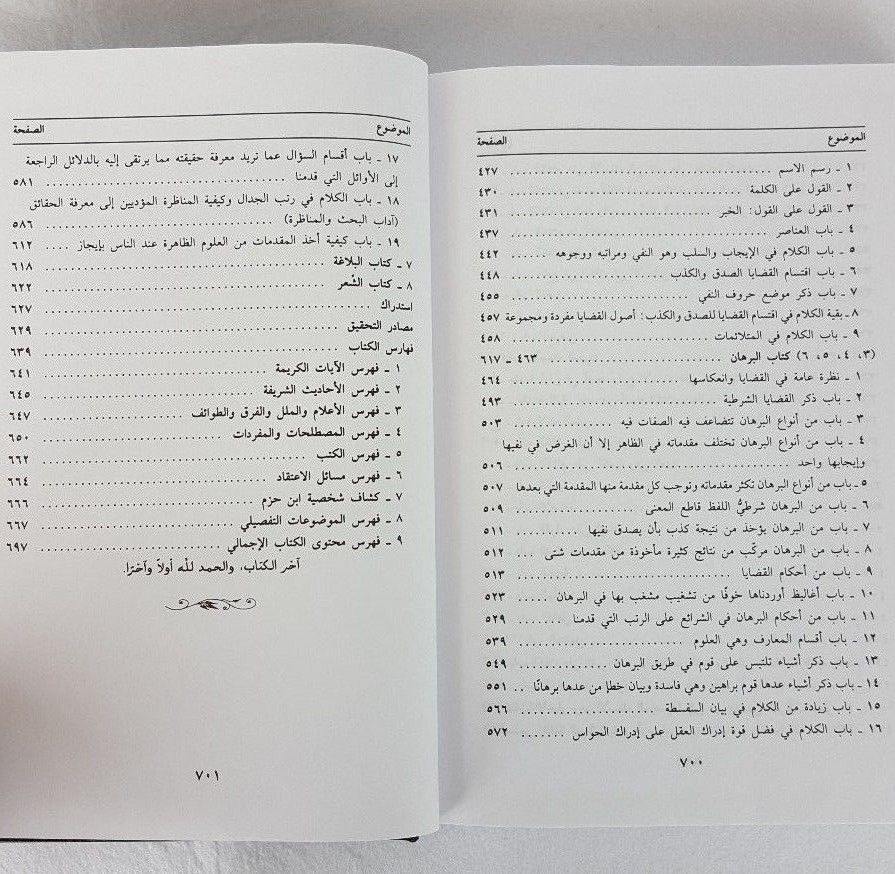 الموضوع الصفحة
١ ـ رسم الاسم .......... ٤٢٧
٢ ـ القول على الكلمة .......... ٤٣٠
٣ ـ القول على القول: الخبر .......... ٤٣١
٤ ـ باب العناصر .......... ٤٣٧
٥ ـ باب الكلام في الإيجاب والسلب وهو النفي ومراتبه ووجوهه .......... ٤٤٢
٦ ـ باب اقتسام القضايا الصدق والكذب .......... ٤٤٨
٧ ـ باب ذكر موضع حروف النفي .......... ٤٥٥
٨ ـ بقية الكلام في اقتسام القضايا للصدق والكذب: أصول القضايا مفردة ومجموعة ٤٥٧
٩ ـ باب الكلام في المتلائمات .......... ٤٥٨
(٣، ٤، ٥، ٦) كتاب البرهان .......... ٤٦٣ ـ ٦١٧
١ ـ نظرة عامة في القضايا وانعكاسها .......... ٤٦٤
٢ ـ باب ذكر القضايا الشرطية .......... ٤٩٣
٣ ـ باب من أنواع البرهان تتضاعف فيه الصفات فيه .......... ٥٠٣
٤ ـ باب من أنواع البرهان تختلف مقدماته في الظاهر إلا أن الغرض في نفيها
وإيجابها واحد .......... ٥٠٦
٥ ـ باب من أنواع البرهان تكثر مقدماته وتوجب كل مقدمة منها المقدمة التي بعدها ٥٠٧
٦ ـ باب من البرهان شرطيُّ اللفظ قاطع المعنى .......... ٥٠٩
٧ ـ باب من البرهان يؤخذ من نتيجة كذب بأن يصدق نفيها .......... ٥١١
٨ ـ باب من البرهان مركّب من نتائج كثيرة مأخوذة من مقدمات شتى ... ٥١٢
٩ ـ باب من أحكام القضايا .......... ٥١٣
١٠ ـ باب أغاليط أوردناها خوفًا من تشغيب مشغب بها في البرهان ..... ٥٢٣
١١ ـ باب من أحكام البرهان في الشرائع على الرتب التي قدمنا ........ ٥٢٩
١٢ ـ باب أقسام المعارف وهي العلوم .......... ٥٣٩
١٣ ـ باب ذكر أشياء تلتبس على قوم في طريق البرهان .......... ٥٤٩
١٤ ـ باب ذكر أشياء عدها قوم براهين وهي فاسدة وبيان خطإ من عدها برهانًا .. ٥٥١
١٥ ـ باب زيادة من الكلام في بيان السفسطة .......... ٥٦٦
١٦ ـ باب الكلام في فضل قوة إدراك العقل على إدراك الحواس ....... ٥٧٢
٧٠٠
الموضوع الصفحة
١٧ ـ باب أقسام السؤال عما تريد معرفة حقيقته مما يرتقى إليه بالدلائل الراجعة
إلى الأوائل التي قدمنا .......... ٥٨١
١٨ ـ باب الكلام في رتب الجدال وكيفية المناظرة المؤديين إلى معرفة الحقائق
(آداب البحث والمناظرة) .......... ٥٨٦
١٩ ـ باب كيفية أخذ المقدمات من العلوم الظاهرة عند الناس بإيجاز .... ٦١٢
٧ ـ كتاب البلاغة .......... ٦١٨
٨ ـ كتاب الشّعر .......... ٦٢٢
استدراك .......... ٦٢٧
مصادر التحقيق .......... ٦٢٩
فهارس الكتاب .......... ٦٣٩
١ ـ فهرس الآيات الكريمة .......... ٦٤١
٢ ـ فهرس الأحاديث الشريفة .......... ٦٤٥
٣ ـ فهرس الأعلام والملل والفرق والطوائف .......... ٦٤٧
٤ ـ فهرس المصطلحات والمفردات .......... ٦٥٠
٥ ـ فهرس الكتب .......... ٦٦٢
٦ ـ فهرس مسائل الاعتقاد .......... ٦٦٤
٧ ـ كشاف شخصية ابن حزم .......... ٦٦٦
٨ ـ فهرس الموضوعات التفصيلي .......... ٦٦٧
٩ ـ فهرس محتوى الكتاب الإجمالي .......... ٦٩٧
آخر الكتاب، والحمد لله أولاً وآخرًا.
٧٠١